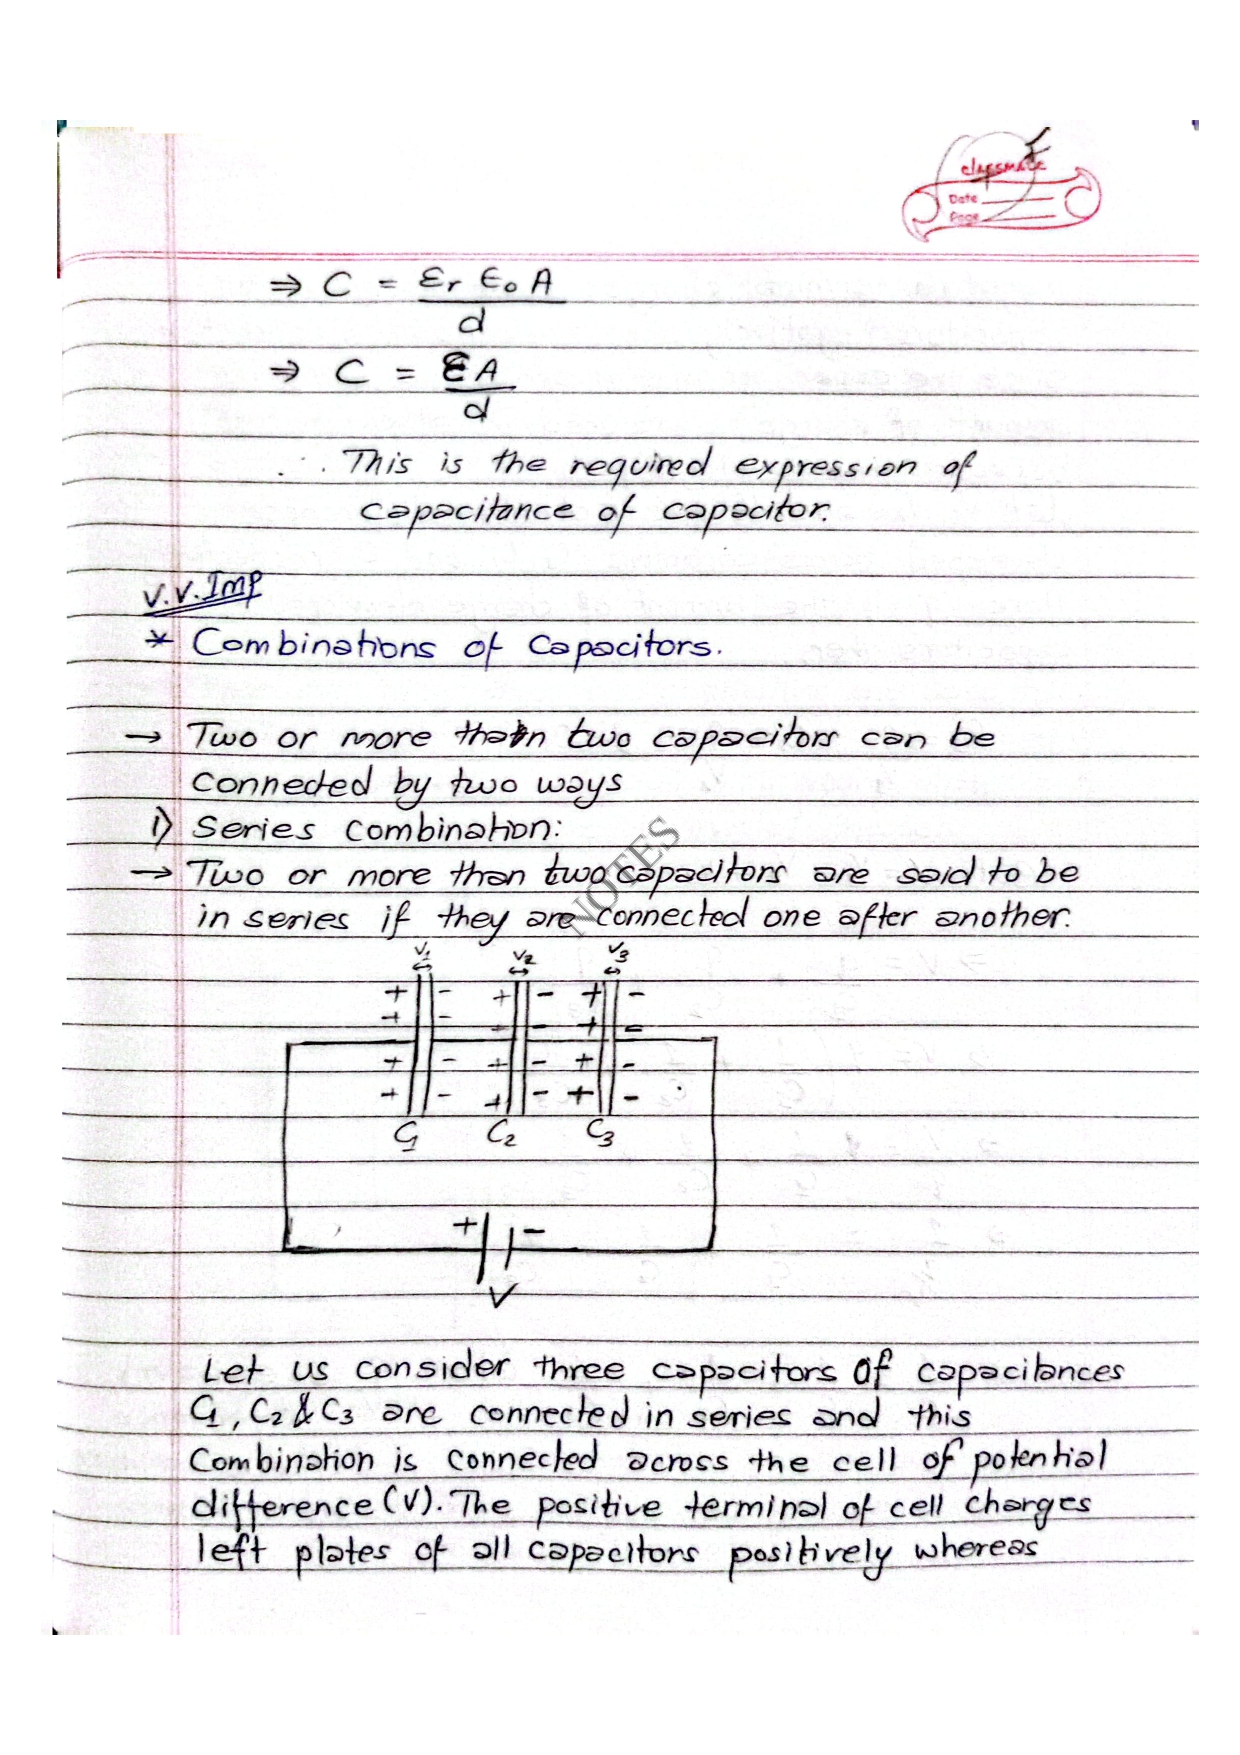 classmate
Date
Page
⇒ C = εr ε₀ A
d
⇒ C = εA
d
∴ This is the required expression of
capacitance of capacitor.
V.V.Imp
* Combinations of Capacitors.
→ Two or more than two capacitors can be
connected by two ways
1) Series Combination:
→ Two or more than two capacitors are said to be
in series if they are connected one after another.
NOTES
V₁ V₂ V₃
+ - + - + -
+ - + - + -
+ - + - + -
+ - + - + -
C₁ C₂ C₃
+ -
V
Let us consider three capacitors of capacitances
C₁, C₂ & C₃ are connected in series and this
Combination is connected across the cell of potential
difference (V). The positive terminal of cell charges
left plates of all capacitors positively whereas